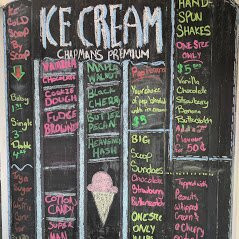 ICE CREAM
CHAPMANS PREMIUM
ICE
COLD
SCOOP
BY
SCOOP
Baby
Single
3
Double
4
Sugar
VANILLA
CHOCOLATE
COOKIE
DOUGH
FUDGE
BROWNIE
COTTON
CANDY
SUPER
MAN
MAPLE
WALNUT
BLACK
CHERRY
BUTTER
PECAN
HEAVENLY
HASH
Your choice
of
with
$5
BIG
Scoop
Sundaes
Chocolate
Strawberry
Butterscotch
ONE SIZE
ONLY
HAND
SPUN
SHAKES
ONE SIZE
ONLY
$5
Vanilla
Chocolate
Strawberry
Banana
Butterscotch
ADD A
for 50¢
Topped with
Peanuts
Whipped
Cream
a Cherry